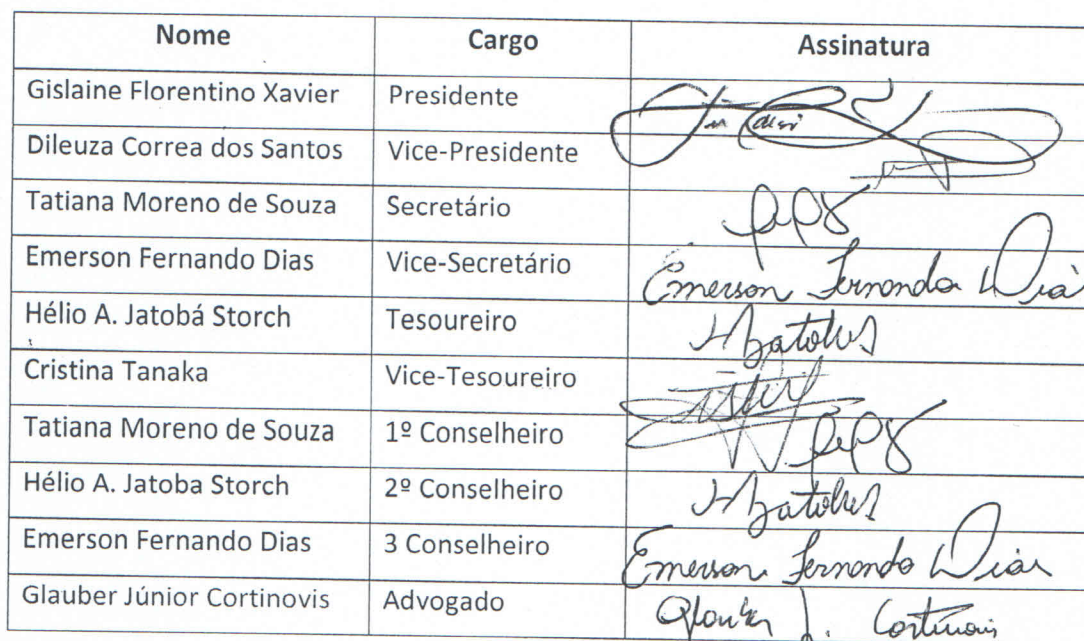 Nome Cargo Assinatura
Gislaine Florentino Xavier Presidente
Dileuza Correa dos Santos Vice-Presidente
Tatiana Moreno de Souza Secretário
Emerson Fernando Dias Vice-Secretário Emerson Fernando Dias
Hélio A. Jatobá Storch Tesoureiro
Cristina Tanaka Vice-Tesoureiro
Tatiana Moreno de Souza 1º Conselheiro
Hélio A. Jatoba Storch 2º Conselheiro
Emerson Fernando Dias 3 Conselheiro Emerson Fernando Dias
Glauber Júnior Cortinovis Advogado Glauber J. Cortinovis